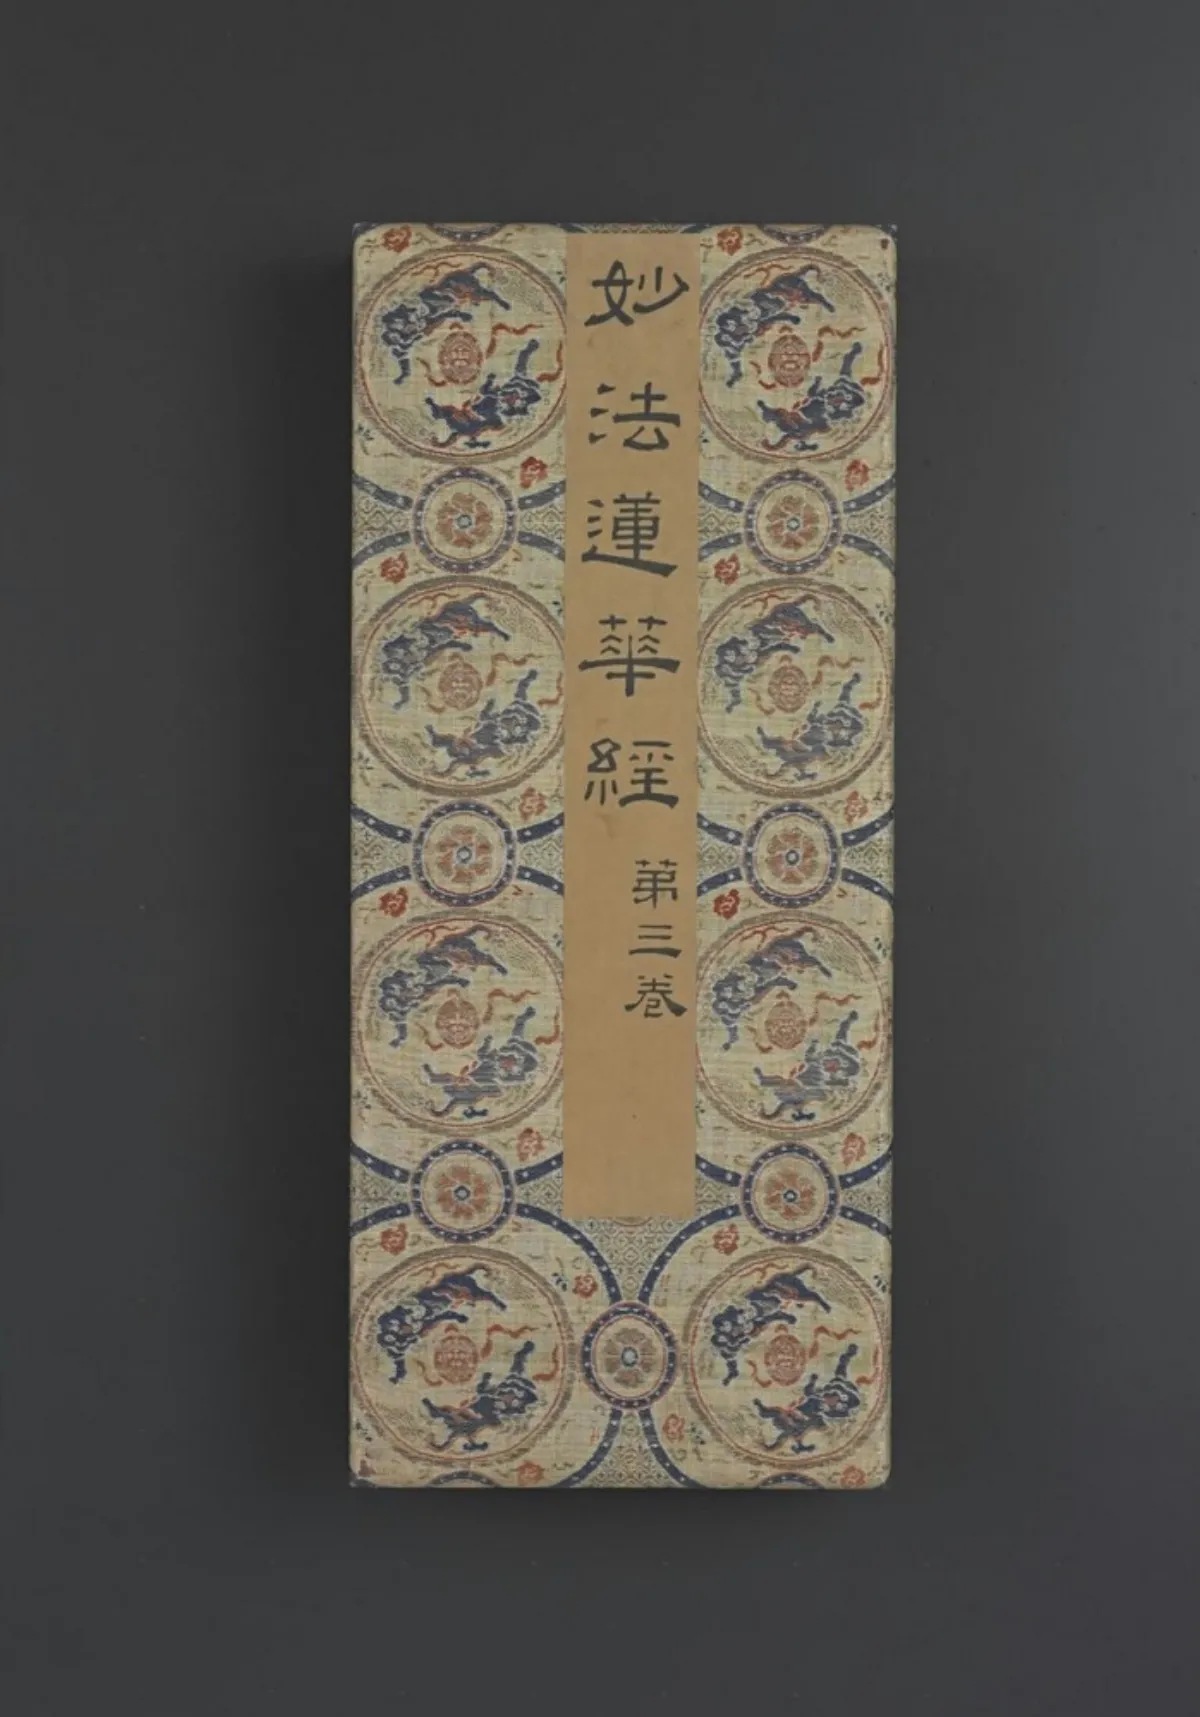 妙法蓮華經 第三卷